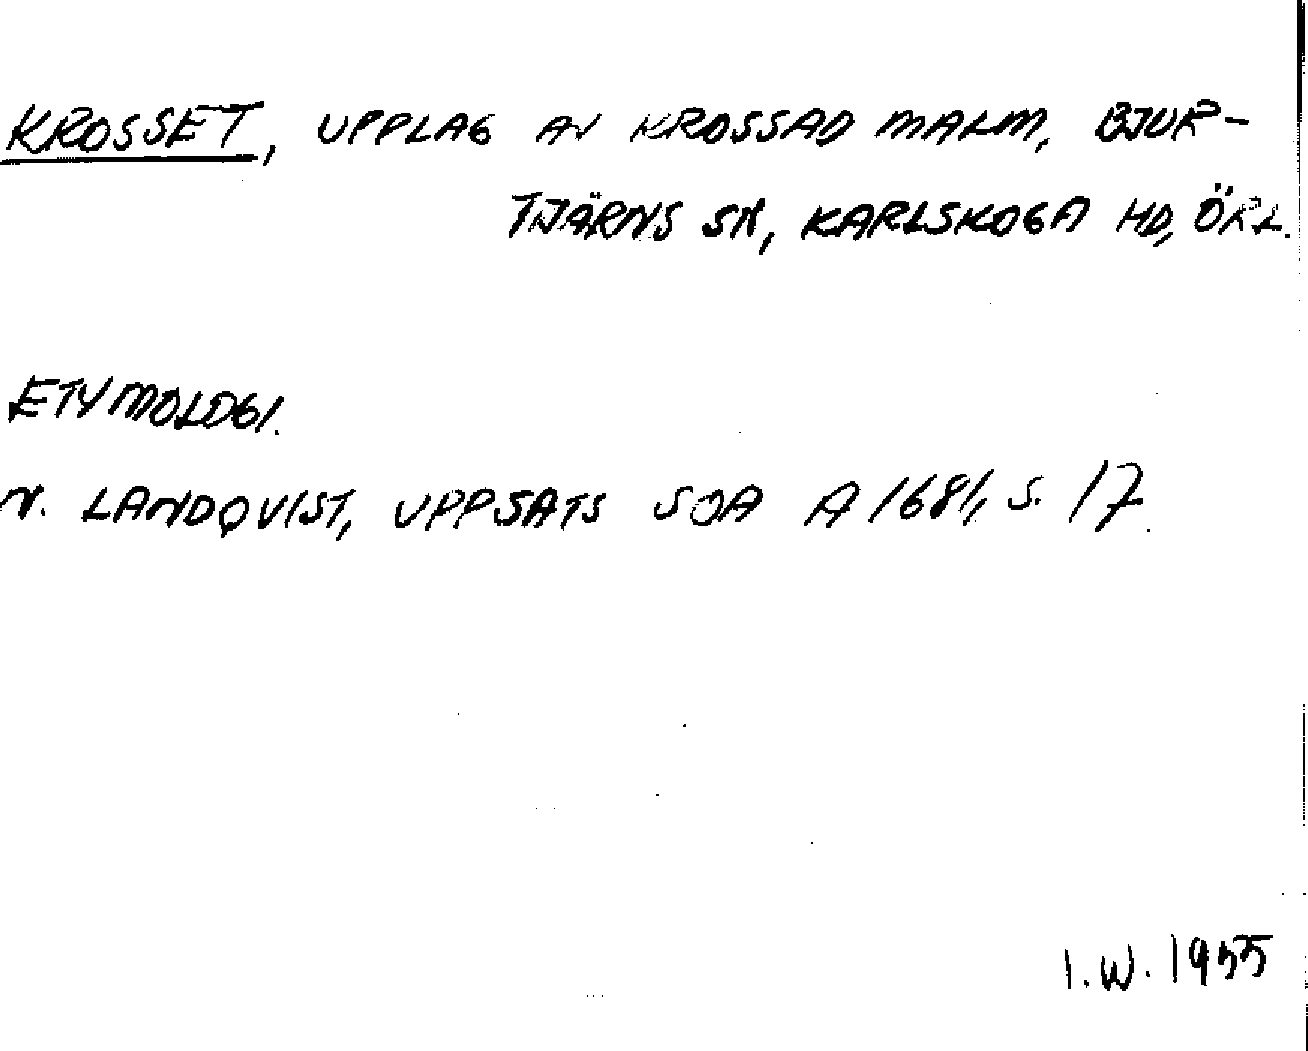 KROSSET, UPPLAG AV KROSSAD MALM, BJUR-
TJÄRNS SN, KARLSKOGA HD, ÖRL.
ETYMOLOGI.
N. LANDQVIST, UPPSATS SOA A 1681, S. 17.
I.W. 1955